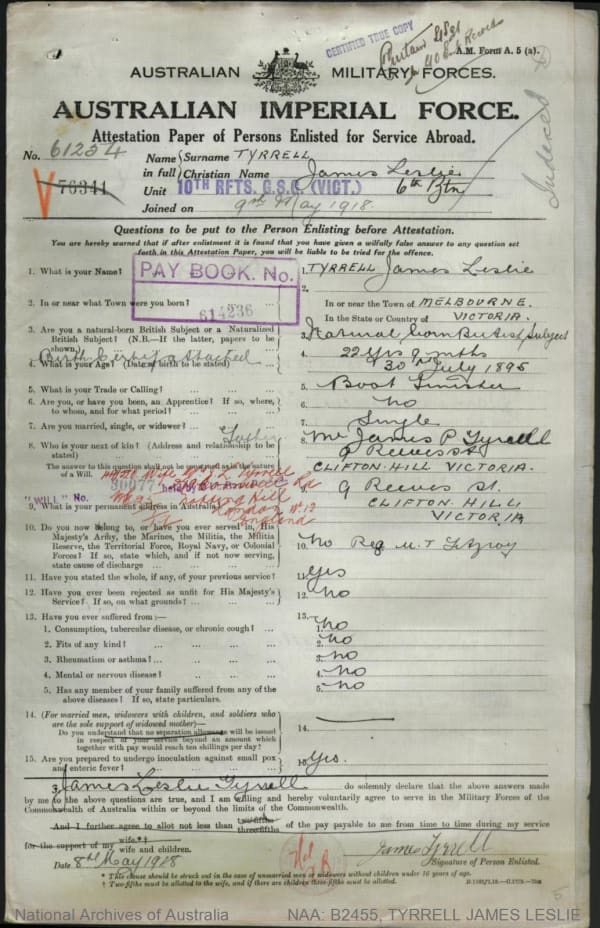 CERTIFIED TRUE COPY
A.M. Form A. 5 (a).
AUSTRALIAN MILITARY FORCES.
AUSTRALIAN IMPERIAL FORCE.
Attestation Paper of Persons Enlisted for Service Abroad.
Indexed
No. 61254
76341
Name in full { Surname TYRRELL
Christian Name James Leslie
Unit 10TH RFTS, G.S.C. (VICT.) 6th Btn
Joined on 9th May 1918
Questions to be put to the Person Enlisting before Attestation.
You are hereby warned that if after enlistment it is found that you have given a wilfully false answer to any question set
forth in this Attestation Paper, you will be liable to be tried for the offence.
PAY BOOK. No.
614236
1. What is your Name? 1. TYRRELL James Leslie
2. In or near what Town were you born? 2. In or near the Town of MELBOURNE.
In the State or Country of VICTORIA.
3. Are you a natural-born British Subject or a Naturalized
British Subject? (N.B.—If the latter, papers to be
shown.) 3. Natural born British Subject
Birth Certif. attached
4. What is your Age? (Date of birth to be stated) 4. 22 yrs 9 mths
30th July 1895
5. What is your Trade or Calling? 5. Boot Finisher
6. Are you, or have you been, an Apprentice? If so, where,
to whom, and for what period? 6. No
7. Are you married, single, or widower? 7. Single
8. Who is your next of kin? (Address and relationship to be
stated) Father 8. Mr James P Tyrrell
9 Reeves St
CLIFTON HILL VICTORIA.
The answer to this question shall not be construed as in the nature
of a Will.
"WILL" No.
London W.12
England
9. What is your permanent address in Australia? 9. 9 Reeves St.
CLIFTON HILL
VICTORIA
10. Do you now belong to, or have you ever served in, His
Majesty's Army, the Marines, the Militia, the Militia
Reserve, the Territorial Force, Royal Navy, or Colonial
Forces? If so, state which, and if not now serving,
state cause of discharge 10. No Reg M.T Fitzroy
11. Have you stated the whole, if any, of your previous service? 11. Yes
12. Have you ever been rejected as unfit for His Majesty's
Service? If so, on what grounds? 12. No
13. Have you ever suffered from:— 13.
1. Consumption, tubercular disease, or chronic cough? 1. No
2. Fits of any kind? 2. No
3. Rheumatism or asthma? 3. No
4. Mental or nervous disease? 4. No
5. Has any member of your family suffered from any of the
above diseases? If so, state particulars. 5. No
14. (For married men, widowers with children, and soldiers who
are the sole support of widowed mother)—
Do you understand that no separation allowance will be issued
in respect of your service beyond an amount which
together with pay would reach ten shillings per day? 14.
15. Are you prepared to undergo inoculation against small pox
and enteric fever? 15. Yes.
I, James Leslie Tyrrell do solemnly declare that the above answers made
by me to the above questions are true, and I am willing and hereby voluntarily agree to serve in the Military Forces of the
Commonwealth of Australia within or beyond the limits of the Commonwealth.
And I further agree to allot not less than two-fifths three-fifths of the pay payable to me from time to time during my service
for the support of my wife*† wife and children.
Date 8th May 1918
James Tyrrell
Signature of Person Enlisted.
* This clause should be struck out in the case of unmarried men or widowers without children under 16 years of age.
† Two-fifths must be allotted to the wife, and if there are children three-fifths must be allotted.
National Archives of Australia
NAA: B2455, TYRRELL JAMES LESLIE